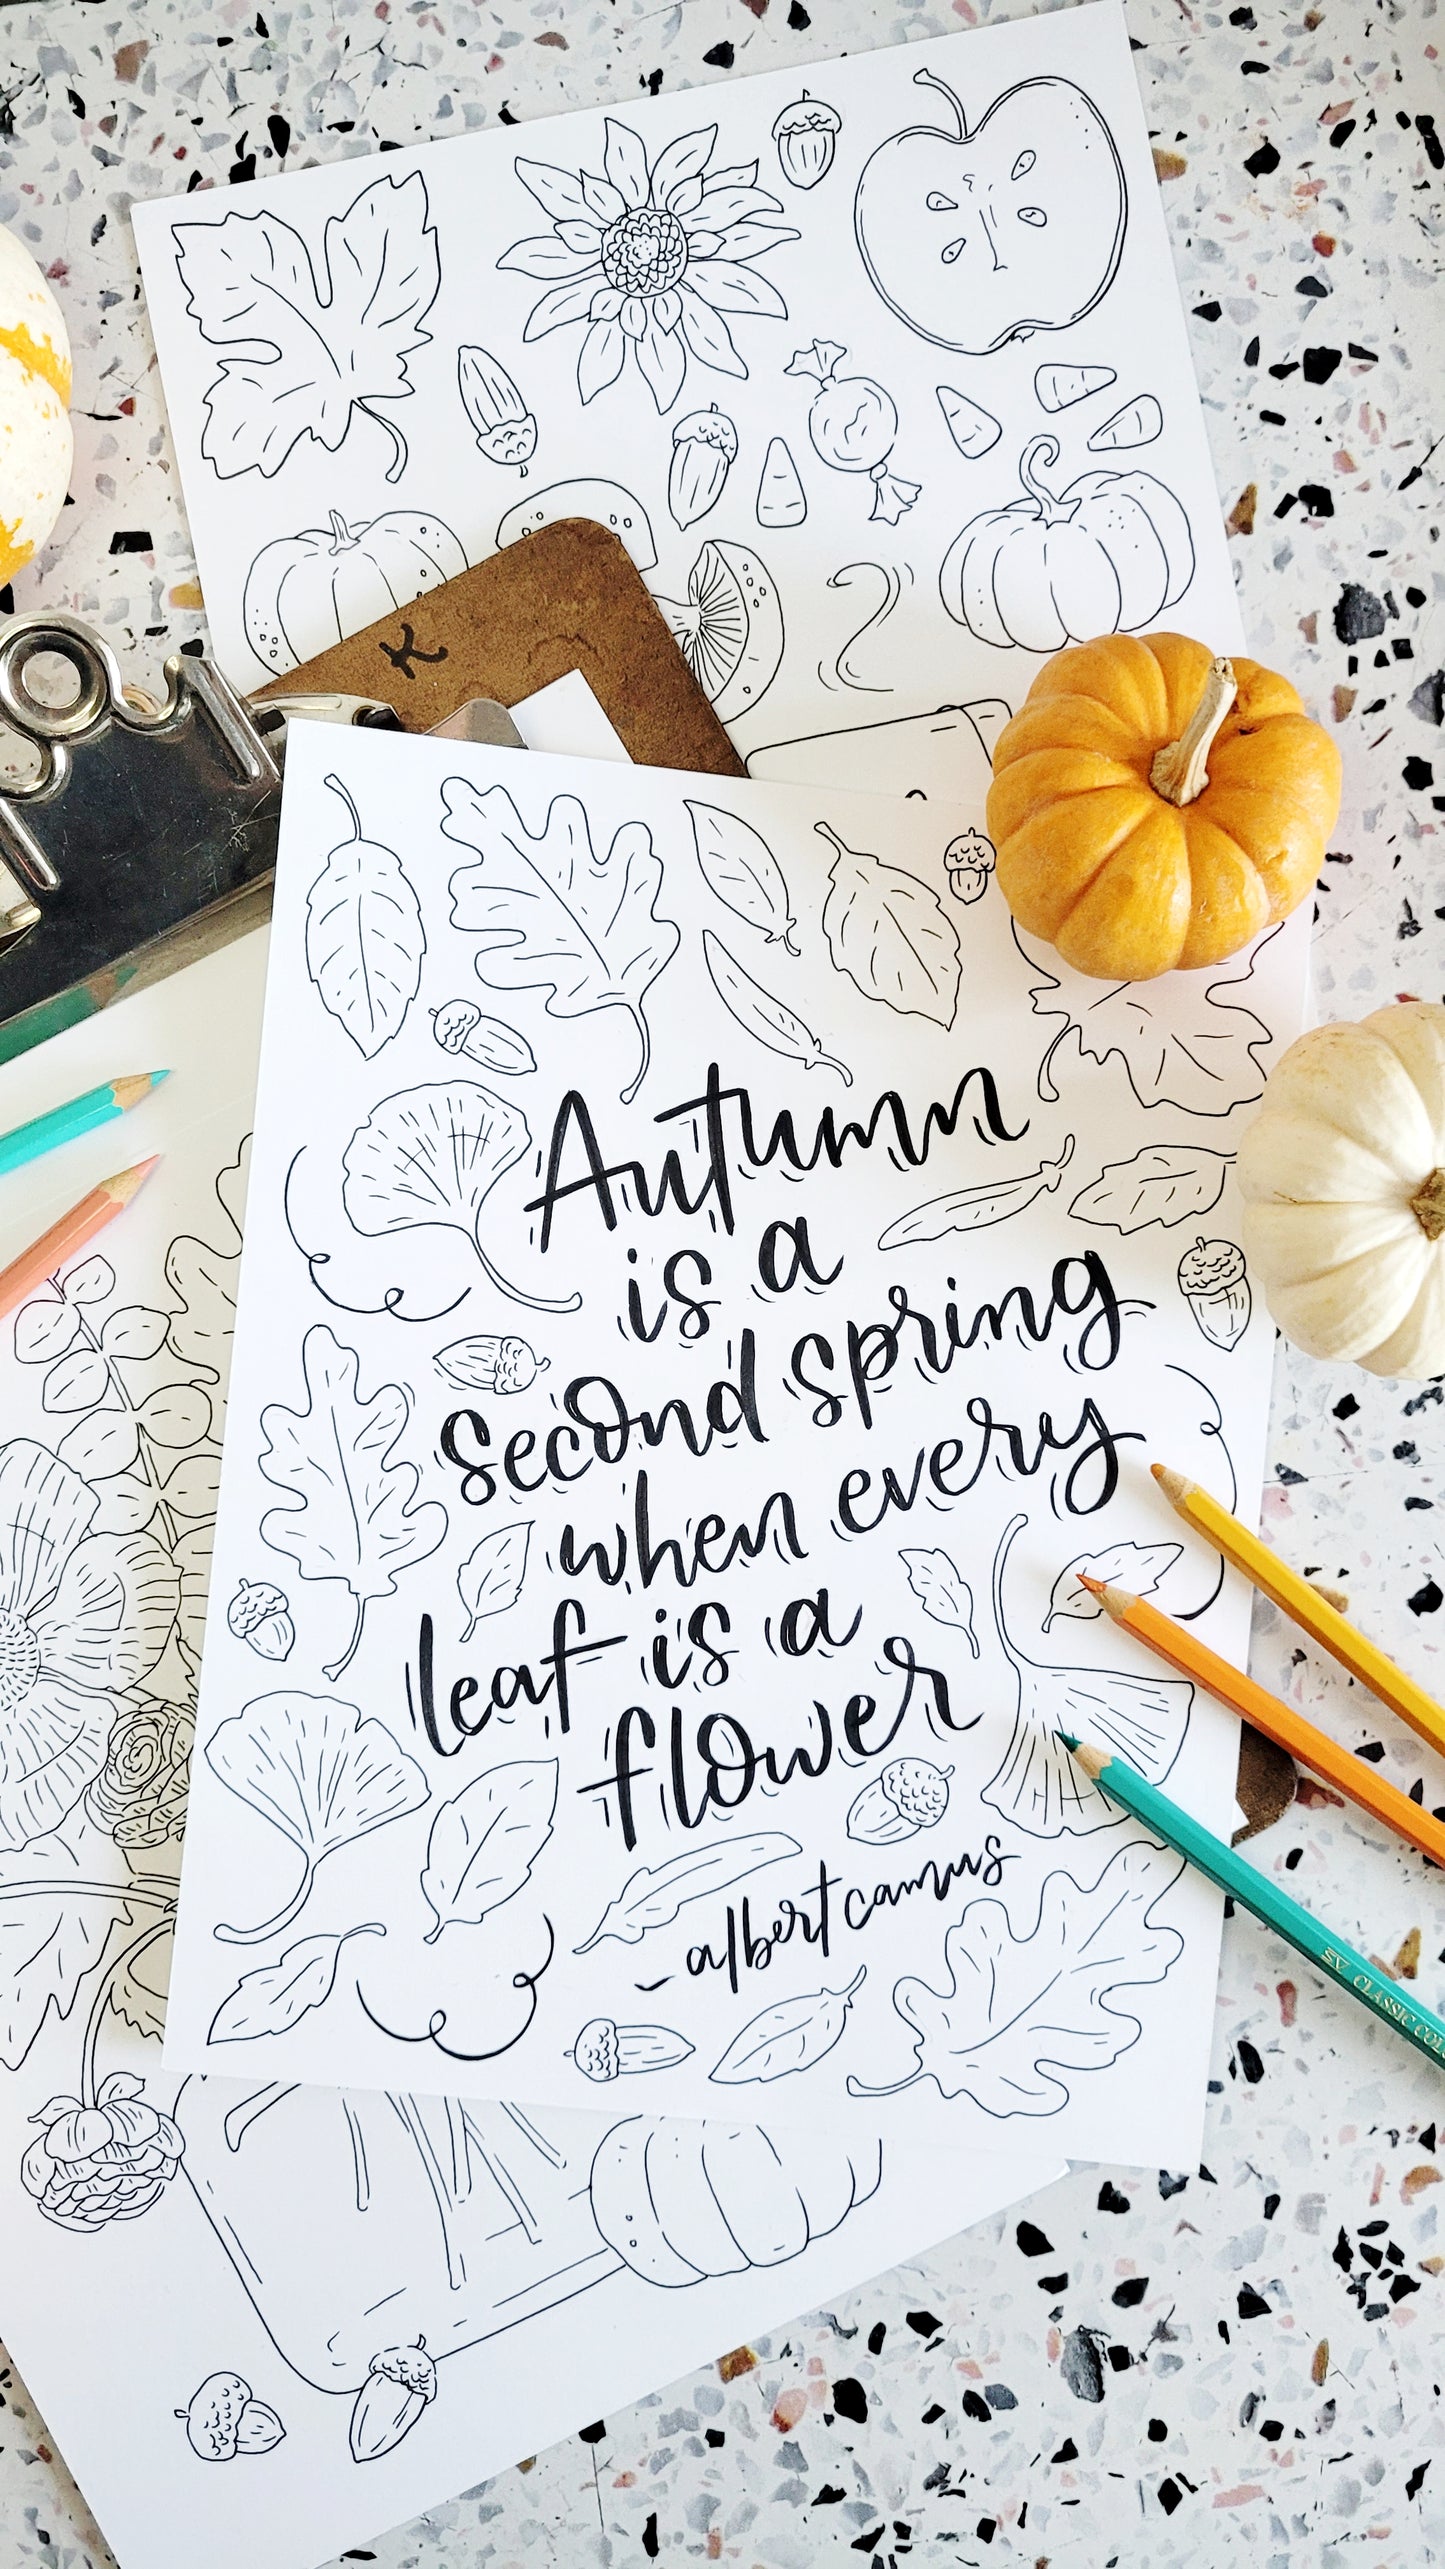 K
Autumn
is a
second spring
when every
leaf is a
flower
- albert camus
CLASSIC